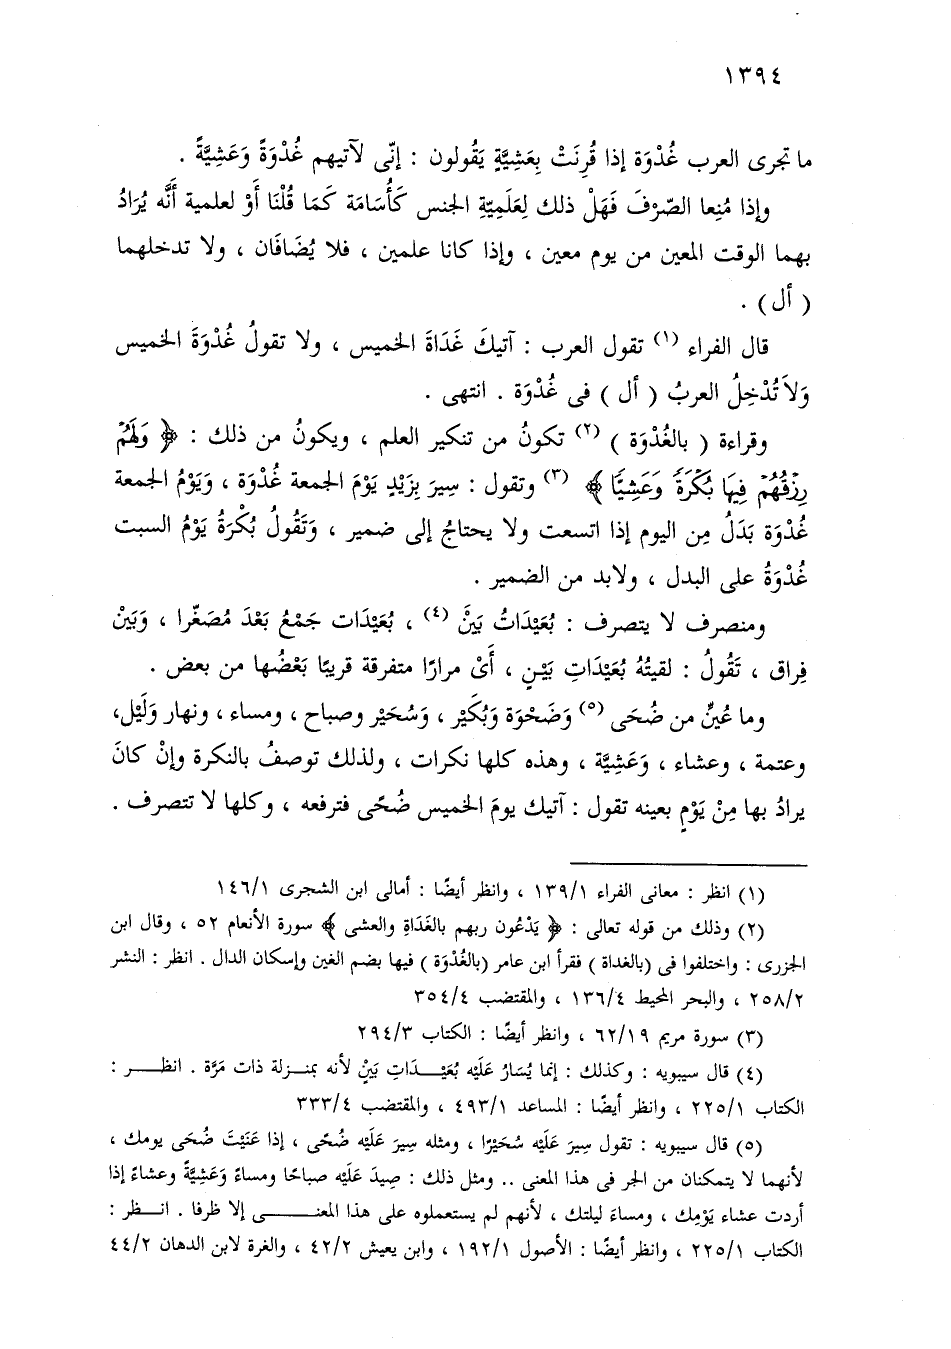 ١٣٩٤
ما تجرى العرب غُدْوَة إذا قُرِنَتْ بِعَشِيَّةٍ يَقُولون : إنّى لآتيهم غُدْوَةً وَعَشِيَّةً .
وإذا مُنِعا الصّرْفَ فَهَلْ ذلك لِعَلَمِيّةِ الجنس كَأُسَامَة كَمَا قُلْنَا أَوْ لعلمية أَنَّه يُرَادُ
بهما الوقت المعين من يوم معين ، وإذا كانا علمين ، فلا يُضَافَان ، ولا تدخلهما
( أل ) .
قال الفراء (١) تقول العرب : آتيكَ غَدَاةَ الخميس ، ولا تقولُ غُدْوَةَ الخميس
وَلاَ تُدْخِلُ العربُ ( أل ) فى غُدْوَة . انتهى .
وقراءة ( بالغُدْوَة ) (٢) تكونُ من تنكير العلم ، ويكونُ من ذلك : ﴿ وَلَهُمْ
رِزْقُهُمْ فِيهَا بُكْرَةً وَعَشِيًّا ﴾ (٣) وتقول : سِيرَ بِزَيْدٍ يَوْمَ الجمعة غُدْوَة ، وَيَوْمُ الجمعة
غُدْوَة بَدَلُ مِن اليوم إذا اتسعت ولا يحتاجُ إلى ضمير ، وَتَقُولُ بُكْرَةُ يَوْمُ السبت
غُدْوَةُ على البدل ، ولابد من الضمير .
ومنصرف لا يتصرف : بُعَيْدَاتُ بَيْنَ (٤) ، بُعَيْدَات جَمْعُ بَعْدَ مُصَغّرا ، وَبَيَنْ
فِراق ، تَقُولُ : لقيتُهُ بُعَيْدَاتِ بَيْنٍ ، أَىْ مرارًا متفرقة قريبًا بَعْضُها من بعض .
وما عُينّ من ضُحَى (٥) وَضَحْوَة وَبُكَيْر ، وَسُحَيْر وصباح ، ومساء ، ونهار وَلَيْل،
وعتمة ، وعشاء ، وَعَشِيَّة ، وهذه كلها نكرات ، ولذلك توصفُ بالنكرة وإنْ كانَ
يرادُ بها مِنْ يَوْمٍ بعينه تقول : آتيك يومَ الخميس ضُحًى فترفعه ، وكلها لا تتصرف .
(١) انظر : معانى الفراء ١٣٩/١ ، وانظر أيضًا : أمالى ابن الشجرى ١٤٦/١
(٢) وذلك من قوله تعالى : ﴿ يَدْعُون ربهم بالغَدَاةِ والعشى ﴾ سورة الأنعام ٥٢ ، وقال ابن
الجزرى : واختلفوا فى (بالغداة ) فقرأ ابن عامر (بالغُدْوَة ) فيها بضم الغين وإسكان الدال . انظر : النشر
٢٥٨/٢ ، والبحر المحيط ١٣٦/٤ ، والمقتضب ٣٥٤/٤
(٣) سورة مريم ٦٢/١٩ ، وانظر أيضًا : الكتاب ٢٩٤/٣
(٤) قال سيبويه : وكذلك : إنما يُسَارُ عَلَيْه بُعَيْـدَاتِ بَيْنٍ لأنه بمنـزلة ذات مَرَّة . انظـر :
الكتاب ٢٢٥/١ ، وانظر أيضًا : المساعد ٤٩٣/١ ، والمقتضب ٣٣٣/٤
(٥) قال سيبويه : تقول سِيرَ عَلَيْه سُحَيْرًا ، ومثله سِيرَ عَلَيْه ضُحًى ، إذا عَنَيْتَ ضُحَى يومك ،
لأنهما لا يتمكنان من الجر فى هذا المعنى .. ومثل ذلك : صِيدَ عَلَيْه صباحًا ومساءً وَعَشِيَّةً وعشاءً إذا
أردت عشاء يَوْمِك ، ومساءَ ليلتك ، لأنهم لم يستعملوه على هذا المعنـى إلا ظرفا . انـظر :
الكتاب ٢٢٥/١ ، وانظر أيضًا : الأصول ١٩٢/١ ، وابن يعيش ٤٢/٢ ، والغرة لابن الدهان ٤٤/٢